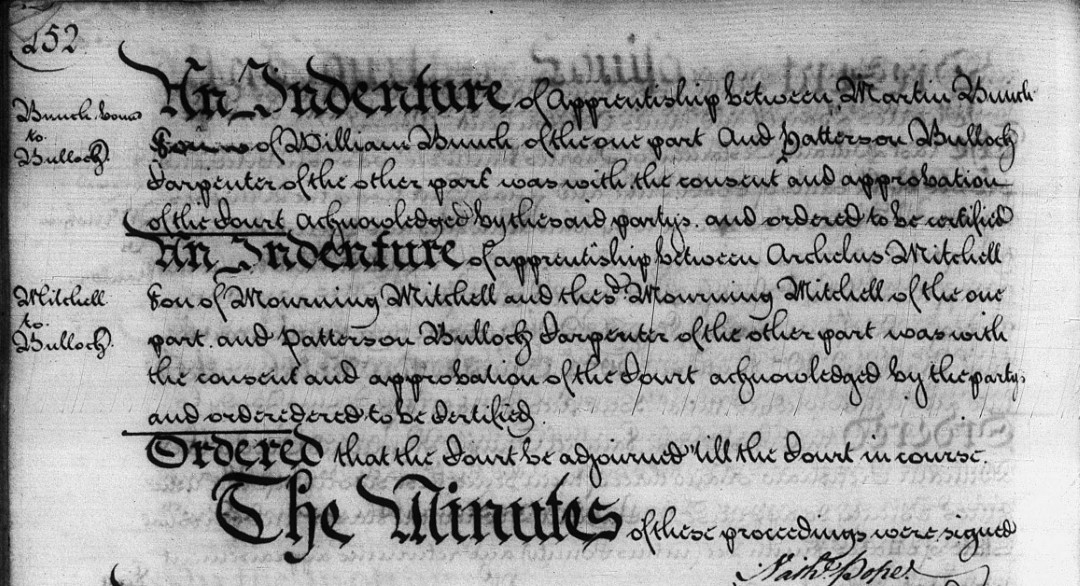 252
Bunch bound
to
Bulloch
An Indenture of Apprentiship between Martin Bunch
of William Bunch of the one part And Patterson Bulloch
Carpenter of the other part was with the consent and approbation
of the Court acknowledged by the said partys. and ordered to be certified
An Indenture of apprentiship between Archelus Mitchell
Mitchell
to
Bulloch.
Son of Mourning Mitchell and the sd. Mourning Mitchell of the one
part. and Patterson Bulloch Carpenter of the other part was with
the consent and approbation of the Court acknowledged by the partys
and orderedered to be Certified
Ordered that the Court be adjourned 'till the Court in course.
The Minutes of these proceedings were signed
Nathl. Pope